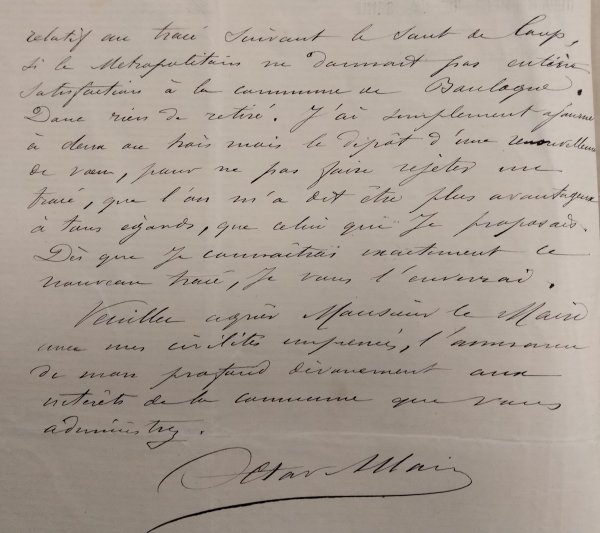 relatif au tracé suivant le Saut de Loup,
si le Métropolitain ne donnait pas entière
satisfaction à la commune de Boulogne.
Donc rien de retiré. J'ai simplement ajourné
à deux ou trois mois le dépôt d'une
de vœu, pour ne pas faire rejeter un
tracé, que l'on m'a dit être plus avantageux
à tous égards, que celui que je proposais.
Dès que je connaîtrai exactement ce
nouveau tracé, je vous l'enverrai.
Veuillez agréer Monsieur le Maire
avec mes civilités empressées, l'assurance
de mon profond dévouement aux
intérêts de la commune que vous
administrez.